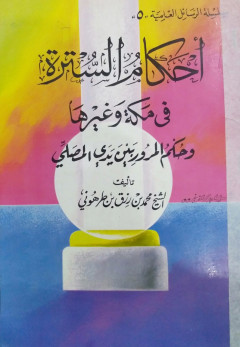 سلسلة الرسائل العلمية «٥»
أحكام السترة
في مكة وغيرها
وحكم المرور بين يدي المصلي
تأليف
الشيخ محمد بن رزق بن طرهوني